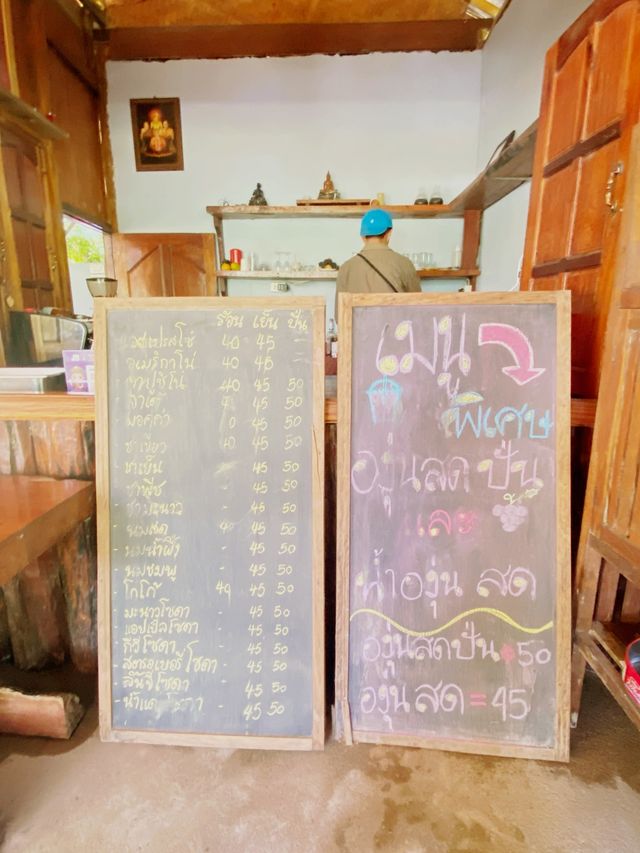 ร้อน เย็น ปั่น
40 45
อเมริกาโน่ 40 45
40 45 50
ลาเต้ 45 50
มอคค่า 45 50
ชาเขียว 40 45 50
ชาเย็น - 45 50
ชาพีช - 45 50
ชามะนาว - 45 50
นมสด 40 45 50
นมน้ำผึ้ง - 45 50
นมชมพู - 45 50
โกโก้ 40 45 50
มะนาวโซดา - 45 50
แอปเปิ้ลโซดา - 45 50
กีวีโซดา - 45 50
สตรอเบอรี่โซดา - 45 50
ลิ้นจี่โซดา - 45 50
45 50
เมนู
พิเศษ
องุ่นสด ปั่น
และ
น้ำองุ่น สด
องุ่นสดปั่น = 50
องุ่นสด = 45